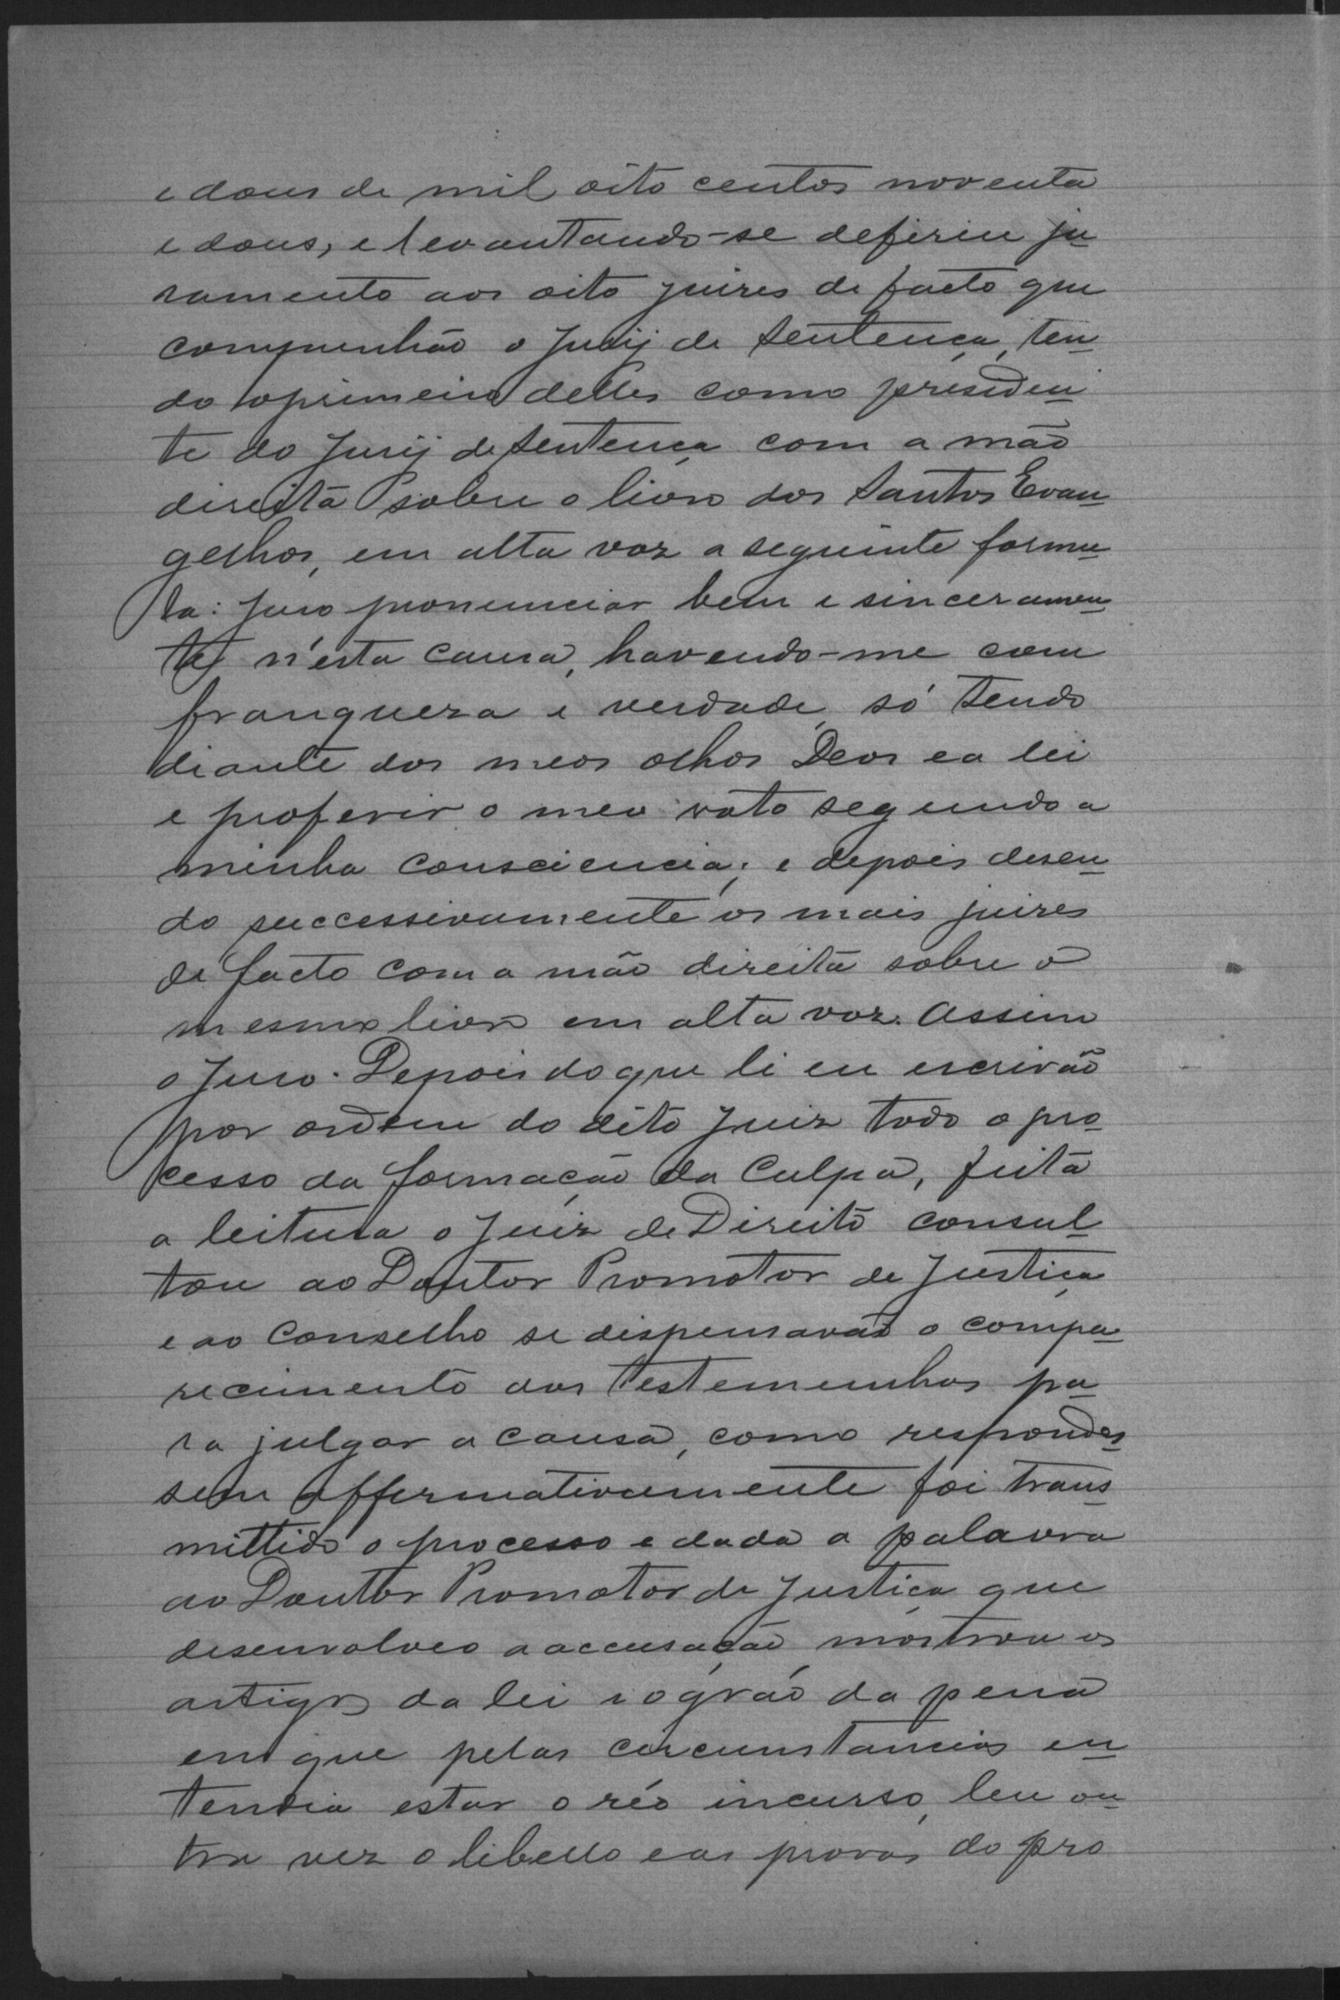 e dous de mil oito centos noventa
e dous, e levantando-se deferiu ju
ramento aos oito juizes de facto que
compunhão o Jury de Sentença, ten
do o primeiro delles como presiden
te do Jury de Sentença com a mão
direita sobre o livro dos Santos Evan
gelhos, em alta voz a seguinte formu
la: juro pronunciar bem e sinceramen
te n'esta causa, havendo-me com
franqueza e verdade, só tendo
diante dos meos olhos Deos e a lei
e proferir o meu voto segundo a
minha consciencia; e depois disen
do successivamente os mais juizes
de facto com a mão direita sobre o
mesmo livro em alta voz. Assim
o juro. Depois do que li eu escrivão
por ordem do dito juiz todo o pro
cesso da formação da culpa, feita
a leitura o juiz de Direito consul
tou ao Doutor Promotor de Justiça
e ao Conselho se dispensavão o compa
recimento das testemunhas pa
ra julgar a causa, como respondes
sem affermativamente foi trans
mittido o processo e dada a palavra
ao Doutor Promotor de Justiça que
desenvolveo a accusação, mostrou os
artigos da lei e o gráo da pena
em que pelas circunstancias en
tendia estar o réo incurso, leu ou
tra vez o libello e as provas do pro